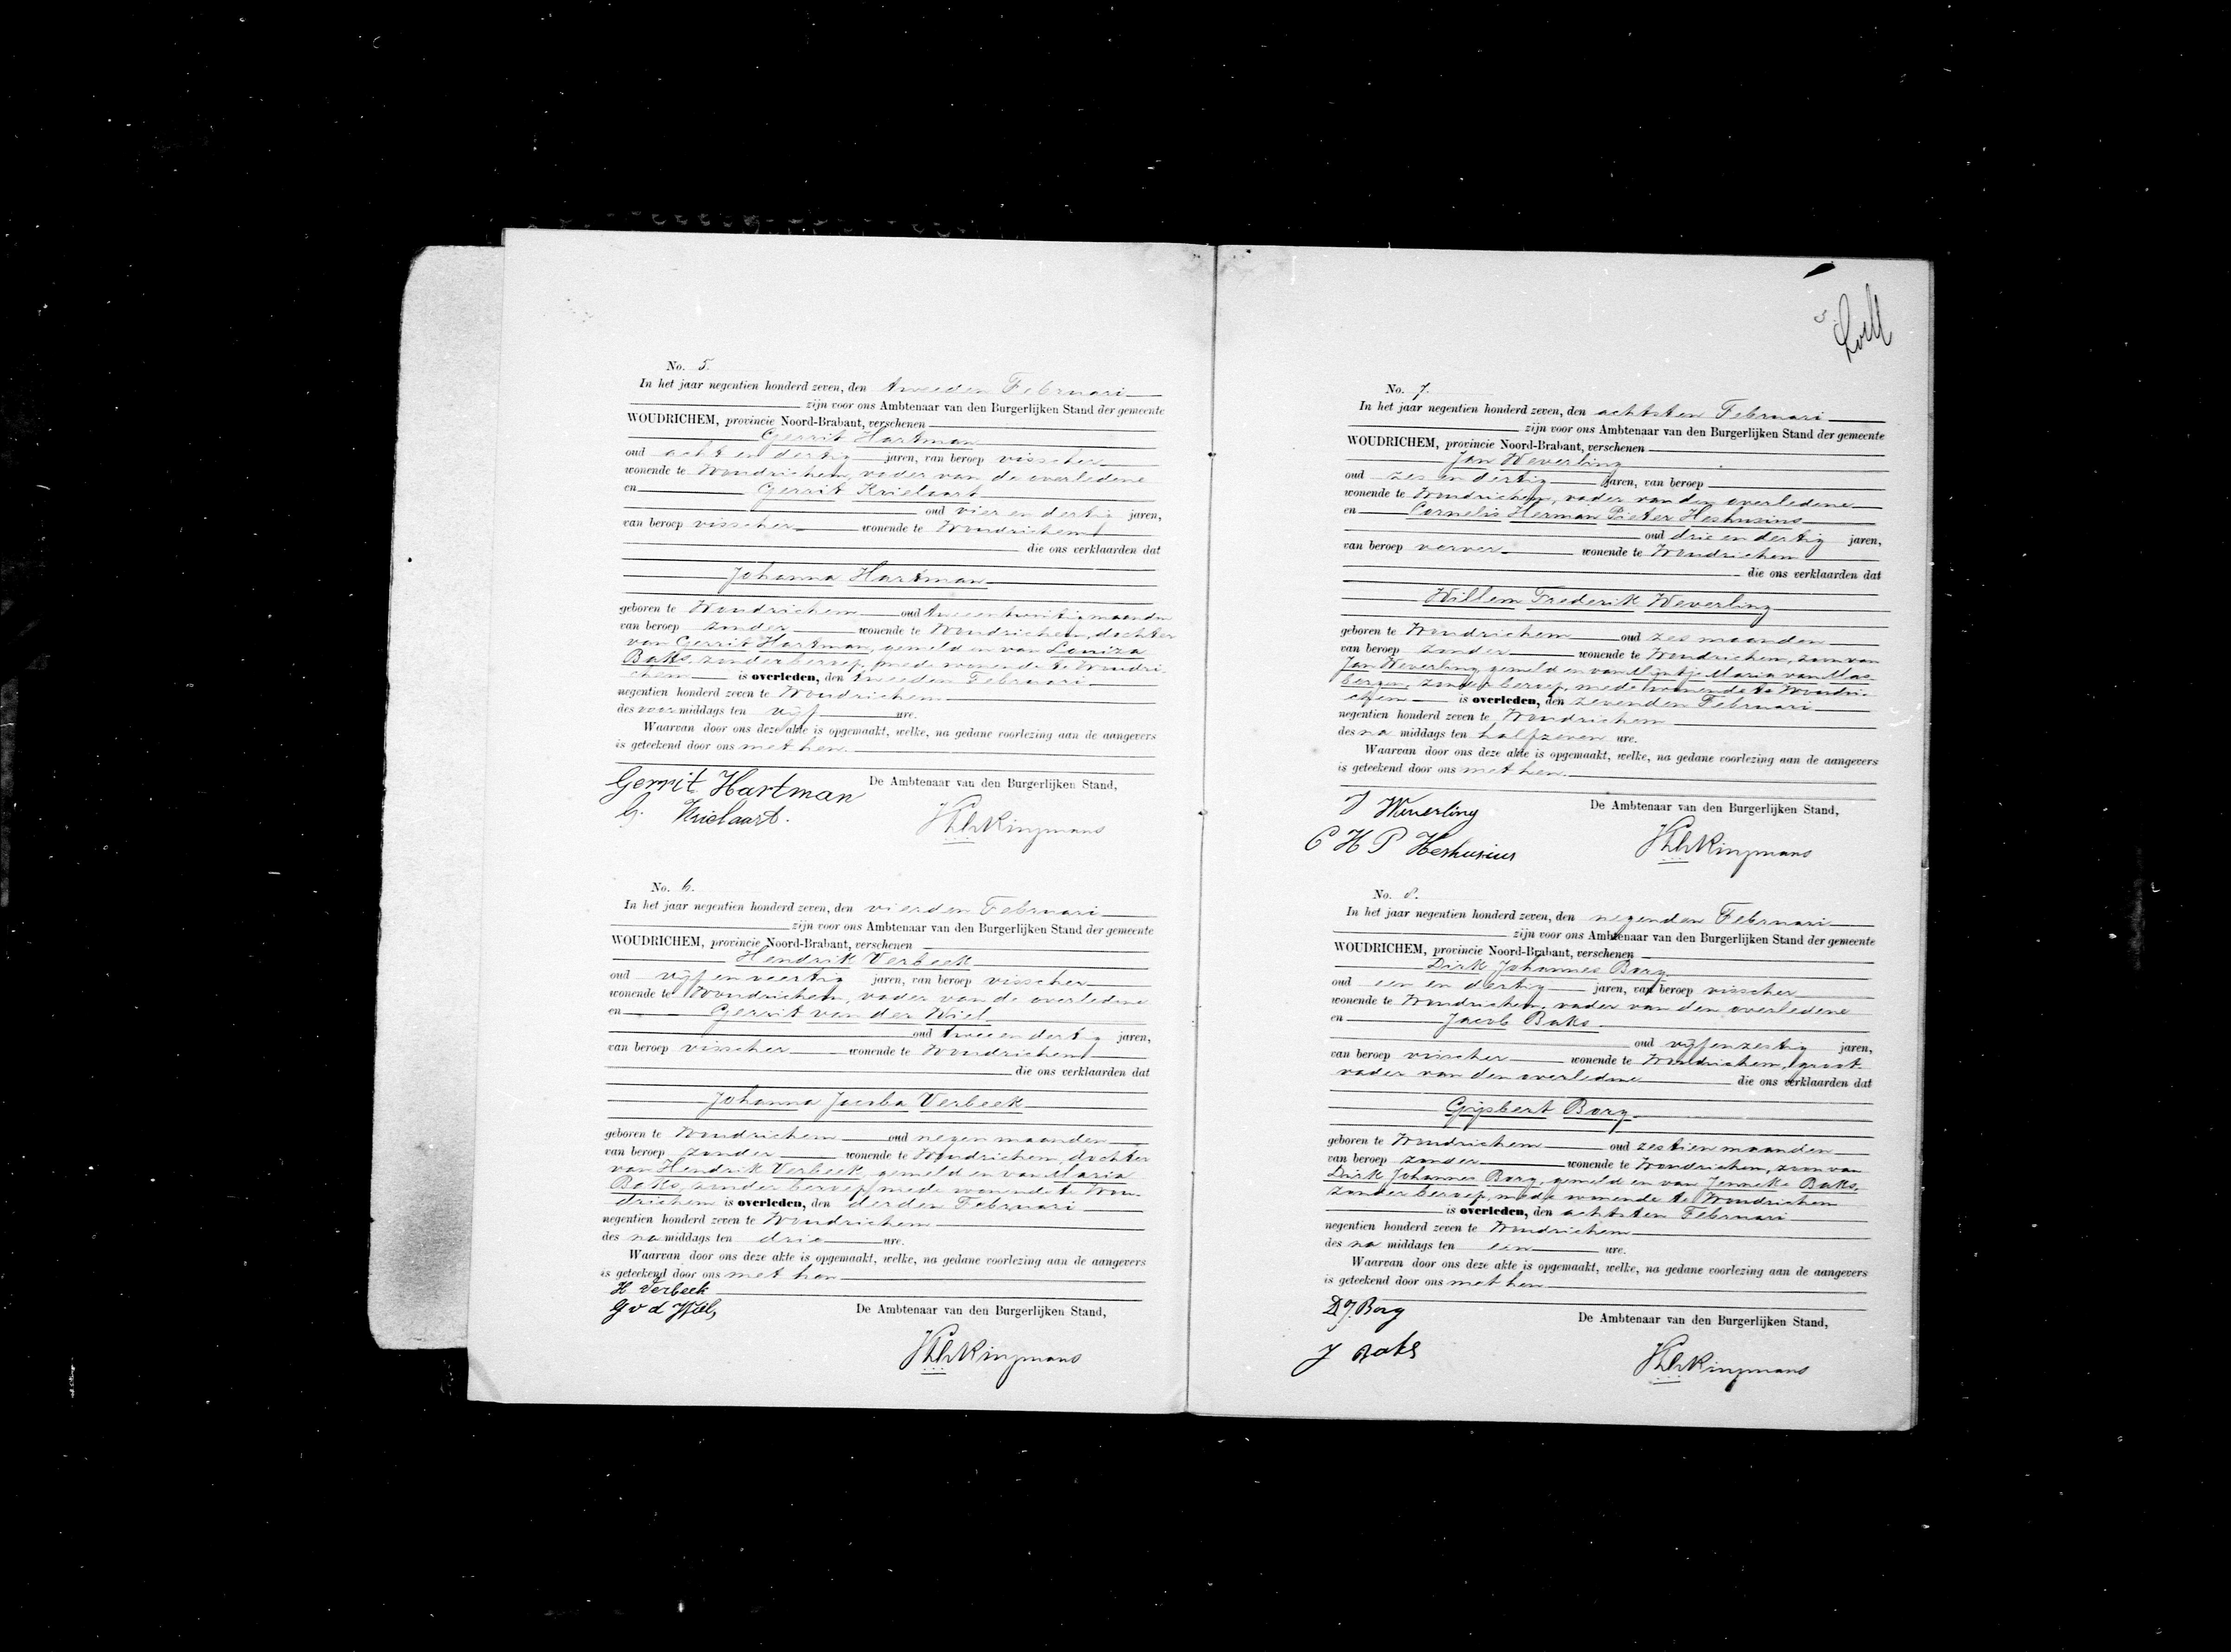 No. 5.
In het jaar negentien honderd zeven, den tweeden Februari
zijn voor ons Ambtenaar van den Burgerlijken Stand der gemeente
WOUDRICHEM, provincie Noord-Brabant, verschenen
Gerrit Hartman
oud acht en dertig jaren, van beroep visscher
wonende te Woudrichem, vader van de overledene
en Gerrit Krielaart
oud vier en dertig jaren,
van beroep visscher wonende te Woudrichem
die ons verklaarden dat
Johanna Hartman
geboren te Woudrichem oud tweeentwintig maanden
van beroep zonder wonende te Woudrichem, dochter
van Gerrit Hartman, gemeld en van Louiza
Baks, zonder beroep, mede wonende te Woudri-
chem is overleden, den tweeden Februari
negentien honderd zeven te Woudrichem
des voormiddags ten vijf ure.
Waarvan door ons deze akte is opgemaakt, welke, na gedane voorlezing aan de aangevers
is geteekend door ons met hen.
Gerrit Hartman De Ambtenaar van den Burgerlijken Stand,
G. Krielaart.
No. 6.
In het jaar negentien honderd zeven, den vierden Februari
zijn voor ons Ambtenaar van den Burgerlijken Stand der gemeente
WOUDRICHEM, provincie Noord-Brabant, verschenen
Hendrik Verbeek
oud vijf en veertig jaren, van beroep visscher
wonende te Woudrichem, vader van de overledene
en Gerrit van der Wiel
oud twee en dertig jaren,
van beroep visscher wonende te Woudrichem
die ons verklaarden dat
Johanna Jacoba Verbeek
geboren te Woudrichem oud negen maanden
van beroep zonder wonende te Woudrichem, dochter
van Hendrik Verbeek, gemeld en van Maria
Baks, zonder beroep, mede wonende te Wou-
drichem is overleden, den derden Februari
negentien honderd zeven te Woudrichem
des namiddags ten drie ure.
Waarvan door ons deze akte is opgemaakt, welke, na gedane voorlezing aan de aangevers
is geteekend door ons met hen
H Verbeek
G v d Wiel De Ambtenaar van den Burgerlijken Stand,
3.
No. 7.
In het jaar negentien honderd zeven, den achtsten Februari
zijn voor ons Ambtenaar van den Burgerlijken Stand der gemeente
WOUDRICHEM, provincie Noord-Brabant, verschenen
Jan Weverling
oud zes en dertig jaren, van beroep
wonende te Woudrichem, vader van den overledene
en Cornelis Herman Pieter Heshusius
oud drie en dertig jaren,
van beroep verver wonende te Woudrichem
die ons verklaarden dat
Willem Frederik Weverling
geboren te Woudrichem oud zes maanden
van beroep zonder wonende te Woudrichem, zoon van
Jan Weverling, gemeld en van Mijntje Maria van Mas-
bergen, zonder beroep, mede wonende te Woudri-
chem is overleden, den zevenden Februari
negentien honderd zeven te Woudrichem
des na middags ten halfzeven ure.
Waarvan door ons deze akte is opgemaakt, welke, na gedane voorlezing aan de aangevers
is geteekend door ons met hen.
J Weverling De Ambtenaar van den Burgerlijken Stand,
C H P Heshusius
No. 8.
In het jaar negentien honderd zeven, den negenden Februari
zijn voor ons Ambtenaar van den Burgerlijken Stand der gemeente
WOUDRICHEM, provincie Noord-Brabant, verschenen
Dirk Johannes Borg
oud een en dertig jaren, van beroep visscher
wonende te Woudrichem, vader van den overledene
en Jacob Baks
oud vijfenzestig jaren,
van beroep visscher wonende te Woudrichem, groot-
vader van den overledene die ons verklaarden dat
Gijsbert Borg
geboren te Woudrichem oud zestien maanden
van beroep zonder wonende te Woudrichem, zoon van
Dirk Johannes Borg, gemeld en van Jenneke Baks,
zonder beroep, mede wonende te Woudrichem
is overleden, den achtsten Februari
negentien honderd zeven te Woudrichem
des na middags ten een ure.
Waarvan door ons deze akte is opgemaakt, welke, na gedane voorlezing aan de aangevers
is geteekend door ons met hen
D J. Borg De Ambtenaar van den Burgerlijken Stand,
J Baks